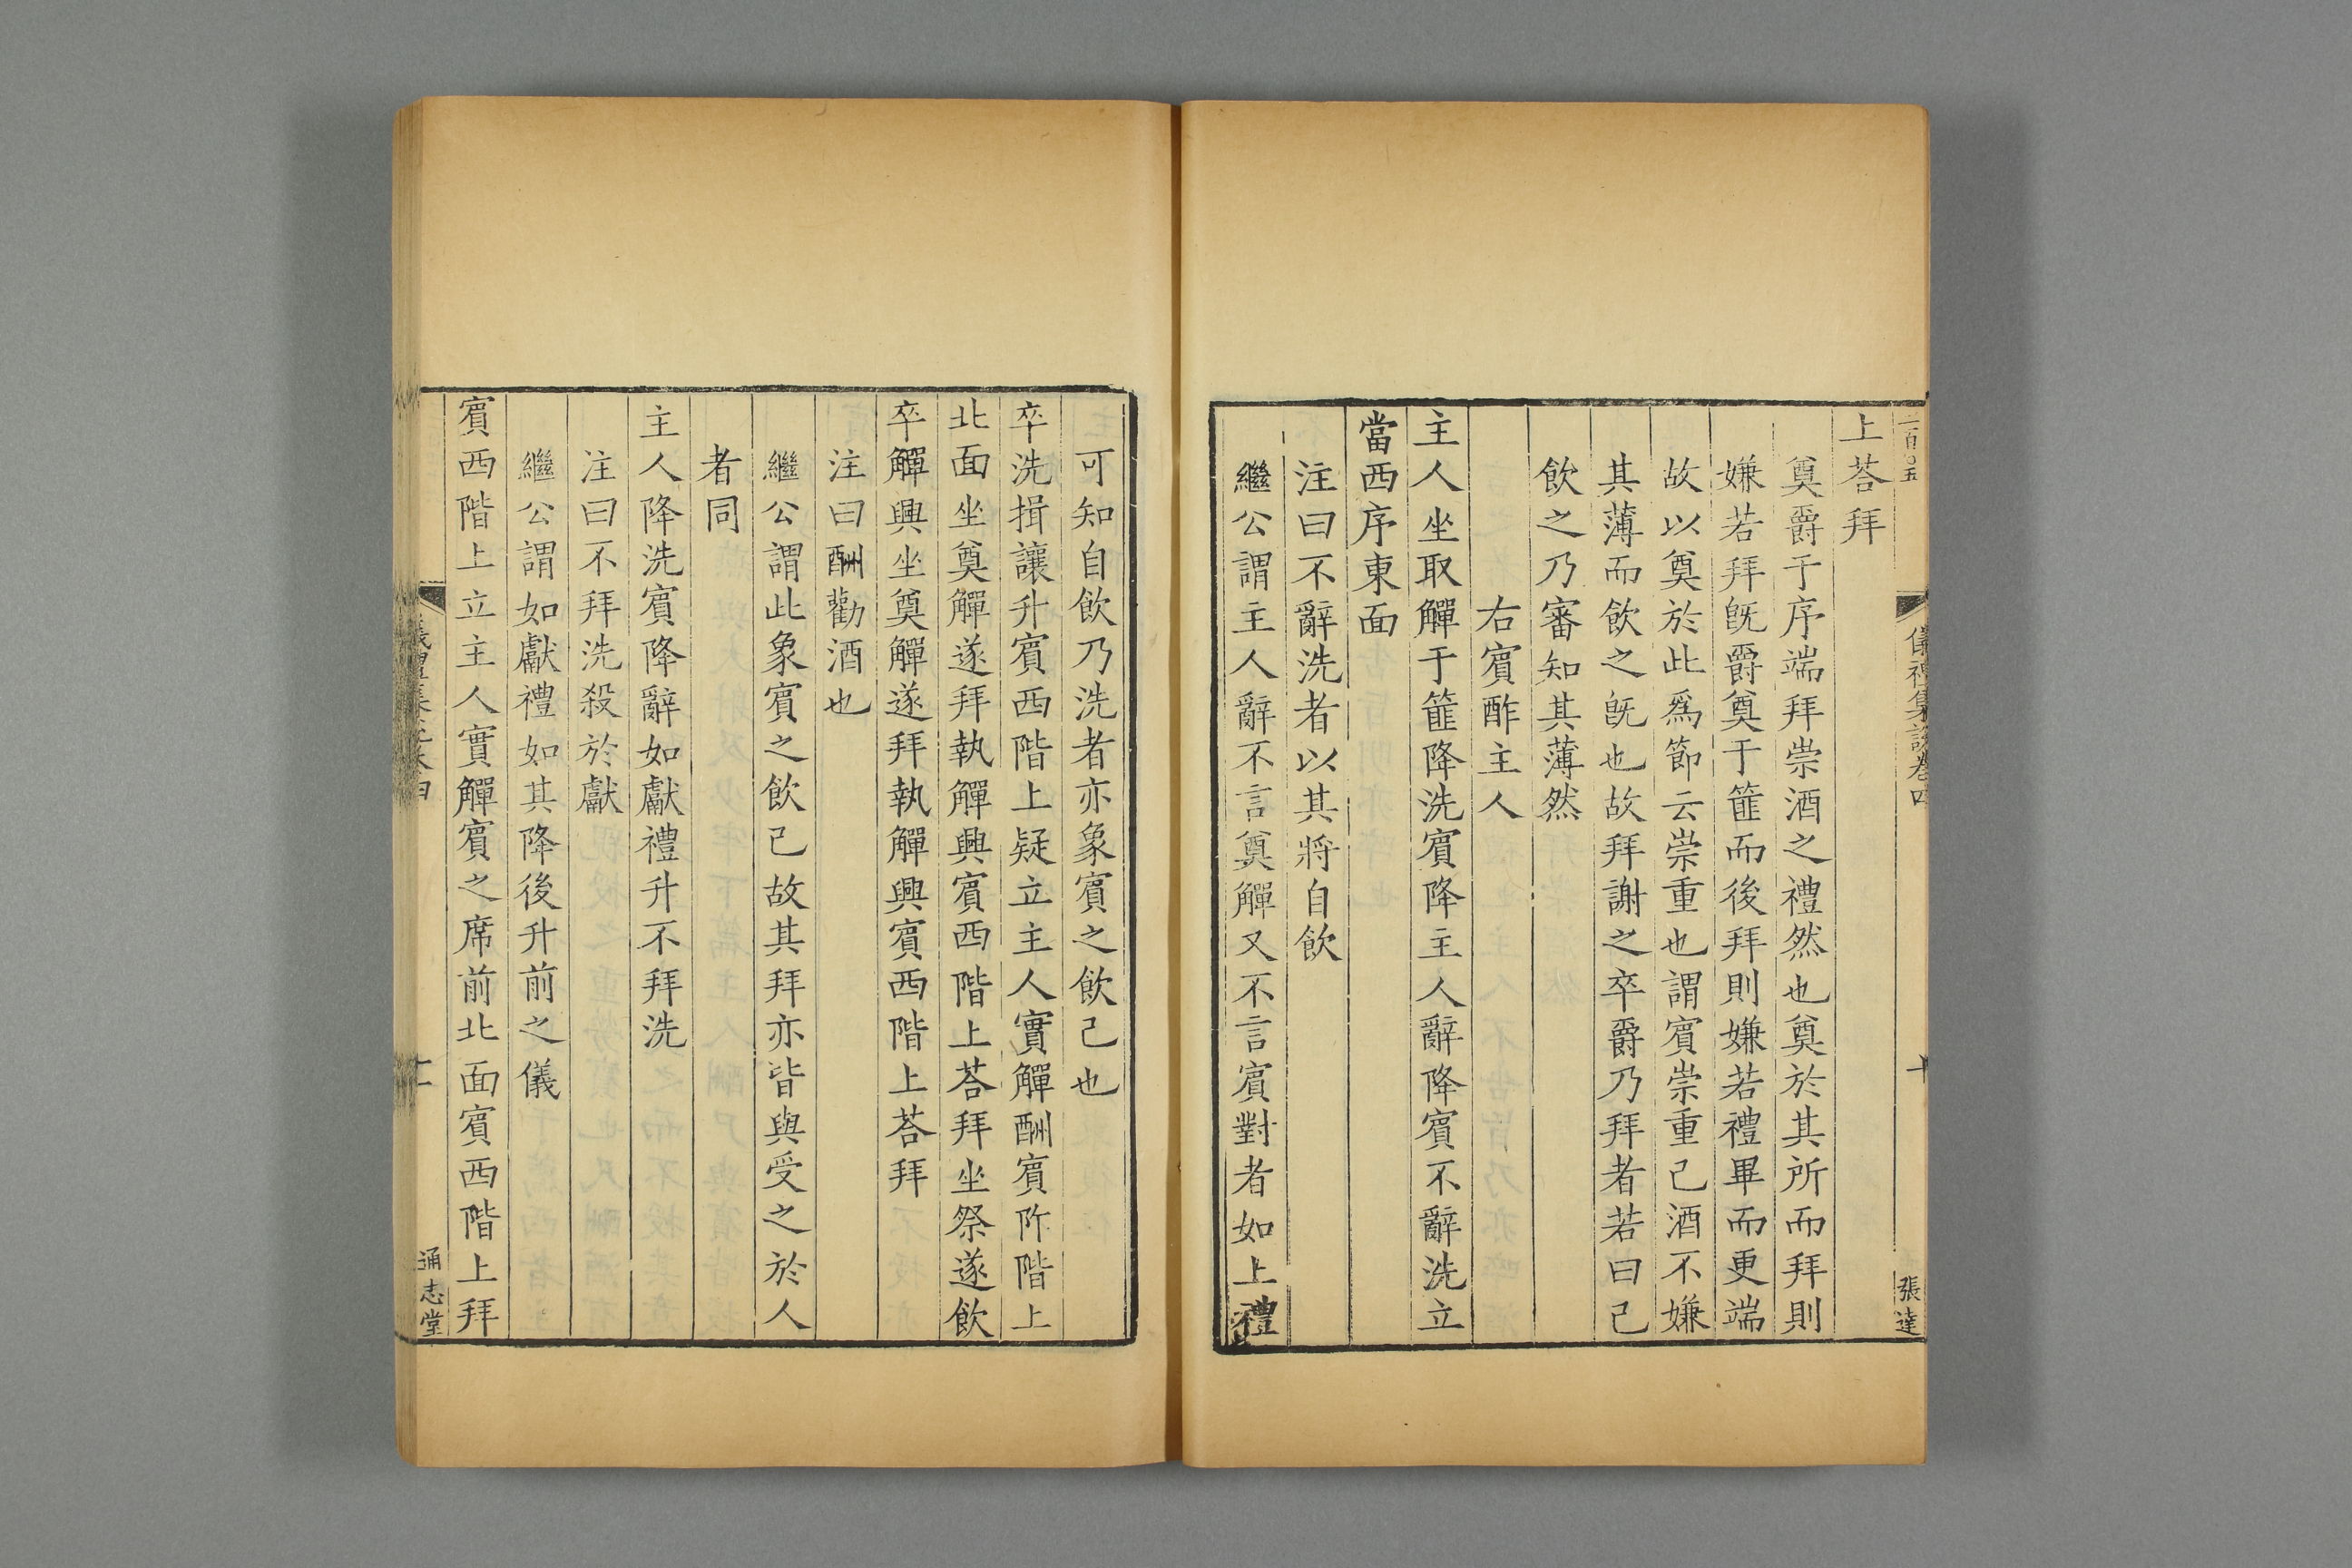 儀禮集說卷四
十
張達
上荅拜
奠爵于序端拜崇酒之禮然也奠於其所而拜則
嫌若拜旣爵奠于篚而後拜則嫌若禮畢而更端
故以奠於此爲節云崇重也謂賓崇重己酒不嫌
其薄而飲之旣也故拜謝之卒爵乃拜者若曰己
飲之乃審知其薄然
右賓酢主人
主人坐取觶于篚降洗賓降主人辭降賓不辭洗立
當西序東面
注曰不辭洗者以其將自飲
繼公謂主人辭不言奠觶又不言賓對者如上禮
可知自飲乃洗者亦象賓之飲己也
卒洗揖讓升賓西階上疑立主人實觶酬賓阼階上
北面坐奠觶遂拜執觶興賓西階上荅拜坐祭遂飲
卒觶興坐奠觶遂拜執觶興賓西階上荅拜
注曰酬勸酒也
繼公謂此象賓之飲己故其拜亦皆與受之於人
者同
主人降洗賓降辭如獻禮升不拜洗
注曰不拜洗殺於獻
繼公謂如獻禮如其降後升前之儀
賓西階上立主人實觶賓之席前北面賓西階上拜
通志堂